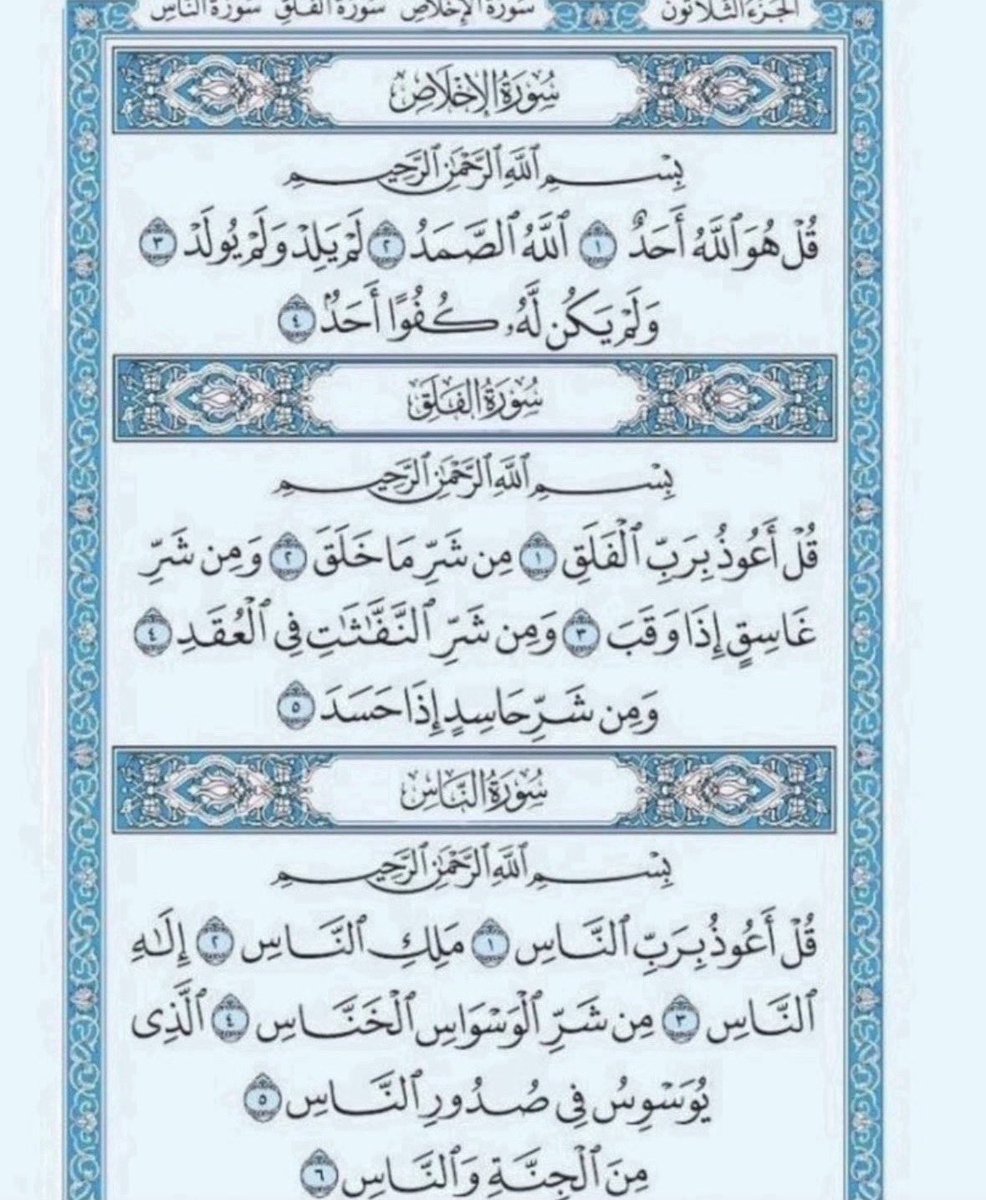 الجزء الثلاثون سورة الإخلاص سورة الفلق سورة الناس
سُورَةُ الإِخْلَاصِ
بِسْمِ ٱللَّهِ ٱلرَّحْمَٰنِ ٱلرَّحِيمِ
قُلْ هُوَ ٱللَّهُ أَحَدٌ ١ ٱللَّهُ ٱلصَّمَدُ ٢ لَمْ يَلِدْ وَلَمْ يُولَدْ ٣
وَلَمْ يَكُن لَّهُۥ كُفُوًا أَحَدٌۢ ٤
سُورَةُ الفَلَقِ
بِسْمِ ٱللَّهِ ٱلرَّحْمَٰنِ ٱلرَّحِيمِ
قُلْ أَعُوذُ بِرَبِّ ٱلْفَلَقِ ١ مِن شَرِّ مَا خَلَقَ ٢ وَمِن شَرِّ
غَاسِقٍ إِذَا وَقَبَ ٣ وَمِن شَرِّ ٱلنَّفَّٰثَٰتِ فِى ٱلْعُقَدِ ٤
وَمِن شَرِّ حَاسِدٍ إِذَا حَسَدَ ٥
سُورَةُ النَّاسِ
بِسْمِ ٱللَّهِ ٱلرَّحْمَٰنِ ٱلرَّحِيمِ
قُلْ أَعُوذُ بِرَبِّ ٱلنَّاسِ ١ مَلِكِ ٱلنَّاسِ ٢ إِلَٰهِ
ٱلنَّاسِ ٣ مِن شَرِّ ٱلْوَسْوَاسِ ٱلْخَنَّاسِ ٤ ٱلَّذِى
يُوَسْوِسُ فِى صُدُورِ ٱلنَّاسِ ٥
مِنَ ٱلْجِنَّةِ وَٱلنَّاسِ ٦